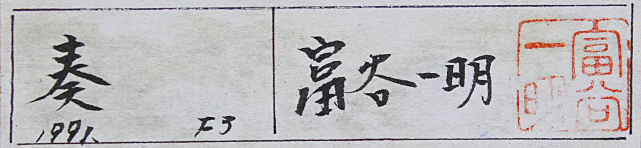 奏
1991. F3
富谷一明
富谷一明